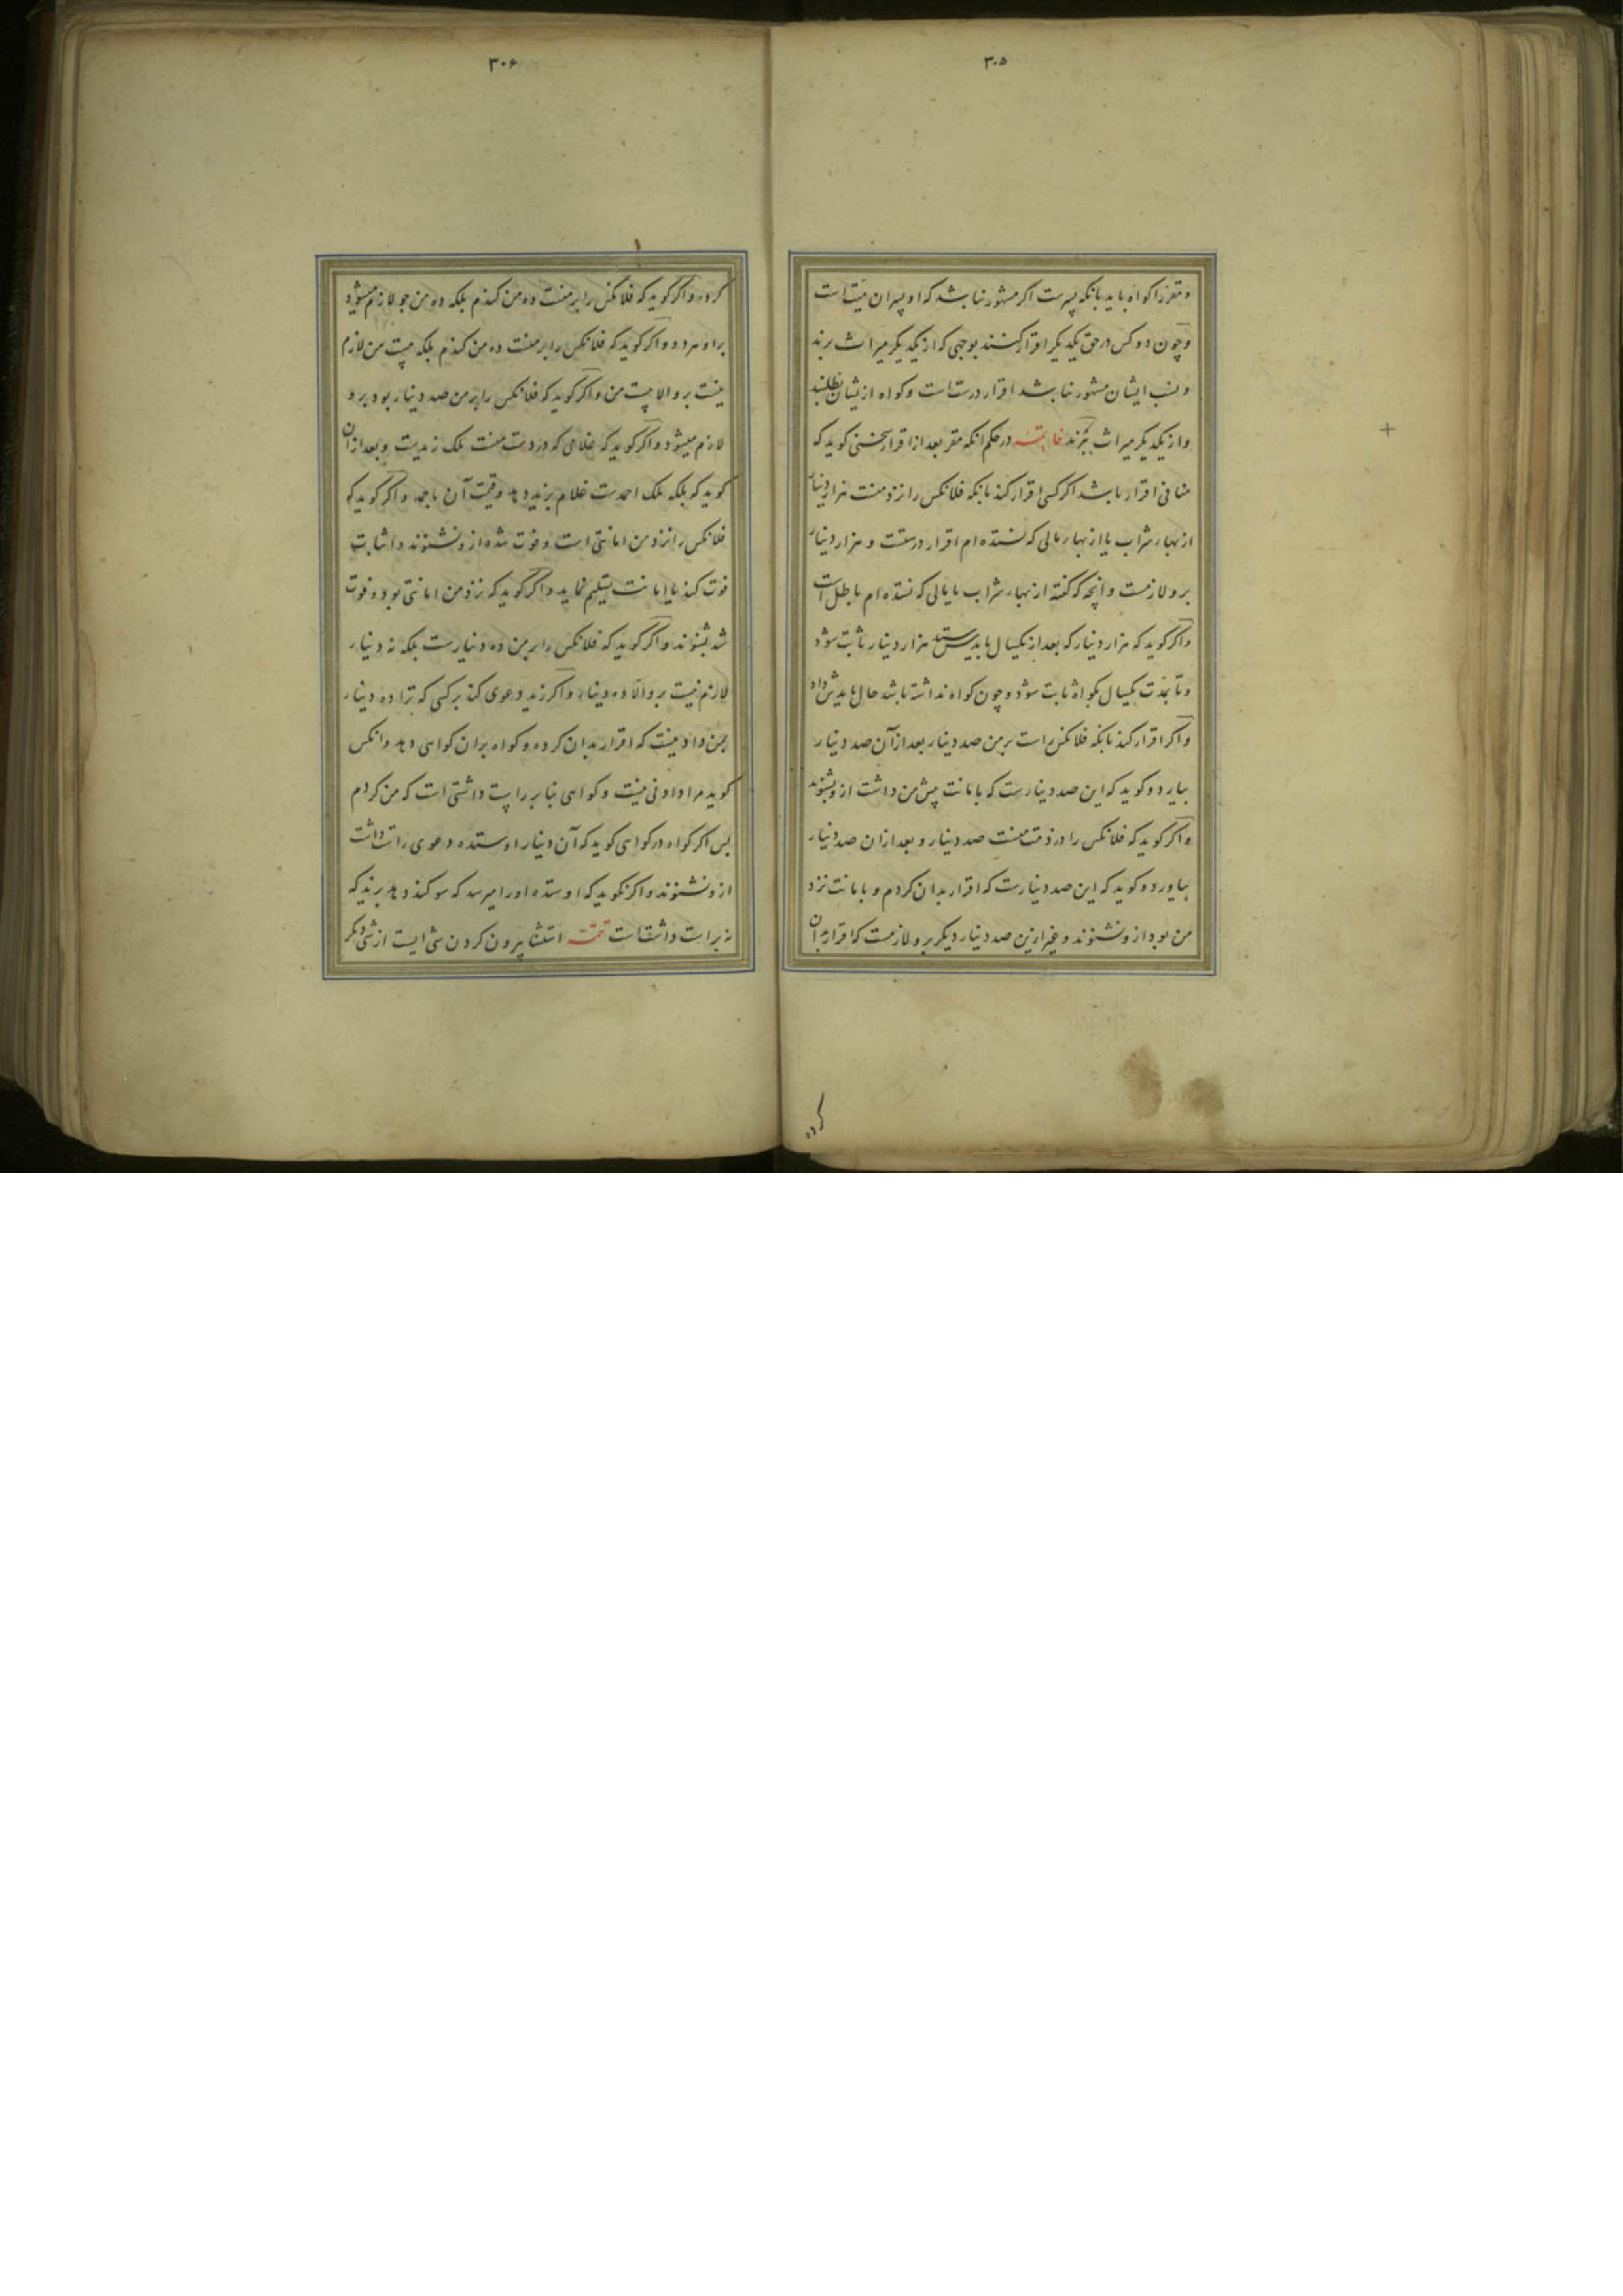 ۳۰۵
و مقر را کواه باید بانکه پسرست اکر مشهور نباشد که او پسر ان میت است
و چون دو کس در حق یکدیکر اقرار کنند بوجهی که از یکدیکر میراث برند
و نسب ایشان مشهور نباشد اقرار درست است و کواه از یشان نطلبند
و از یکدیکر میراث برند خاتمه در حکم انکه مقر بعد از اقرار سخنی کوید که
منافی اقرار باشد اکر کسی اقرار کند بانکه فلانکس را نزد منست هزار دینار
از بهاء شراب یا از بهاء مالی که نستده ام اقرار درستست و هزار دینار
برو لازمست و آنچه که کفته از بهاء شراب یا مالی که نستده ام باطل است
و اکر کوید که هزار دینار که بعد از یکسال باید ستد هزار دینار ثابت شود
و تا بمدت یکسال بکواه ثابت شود و چون کواه نداشته باشد حال بایدش داد
و اکر اقرار کند بانکه فلانکس راست بر من صد دینار بعد از آن صد دینار
بیارد و کوید که این صد دینارست که بامانت پیش من داشت ازو بشنوند
و اکر کوید که فلانکس را در ذمت منست صد دینار و بعد از ان صد دینار
بیاورد و کوید که این صد دینارست که اقرار بدان کردم و بامانت نزد
من بود ازو نشنوند و غیر ازین صد دینار دیکر برو لازمست که اقرار بدان
کرده
۳۰۶
کرده و اکر کوید که فلانکس را بر منست ده من کندم بلکه ده من جو لازم میشود
براو هر دو و اکر کوید که فلانکس را بر منست ده من کندم بلکه بیست من لازم
نیست برو الا بیست من و اکر کوید که فلانکس را بر من صد دینار بود برو
لازم میشود و اکر کوید که غلامی که در دست منست ملک زیدست و بعد از ان
کوید که بلکه ملک احمدست غلام بزید دهد و قیمت آن باحمد و اکر کوید که
فلانکس را نزد من امانتی است و فوت شده ازو نشنوند و اثبات
فوت کند یا امانت تسلیم نماید و اکر کوید که نزد من امانتی بود و فوت
شد بشنوند و اکر کوید که فلانکس را بر من ده دینارست بلکه نه دینار
لازم نیست برو الا ده دینار و اکر زید دعوی کند بر کسی که ترا ده دینار
بمن دادنیست که اقرار بدان کرده و کواه بران کواهی دهد و انکس
کوید مرا دادنی نیست و کواهی بنابر راست داشتی است که من کردم
پس اکر کواه در کواهی کوید که آن دینار او ستده دعوی راست داشت
ازو نشنوند و اکر نکوید که او ستده او را میرسد که سوکند دهد بزید که
نه براست داشتست تتمه استثنا بیرون کردن شی ایست از شی دیکر